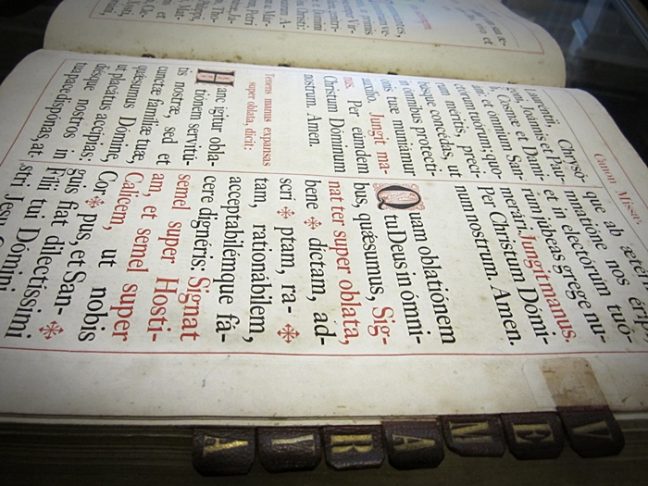 Canon Missæ.
Lauréntii, Chrysó-
goni, Joánnis et Pau-
li, Cosmæ et Dami-
áni, et ómnium San-
ctórum tuórum; quo-
rum méritis, preci-
busque concédas, ut
in ómnibus protecti-
ónis tuæ muniámur
auxílio. Jungit ma-
nus. Per eúndem
Christum Dóminum
nostrum. Amen.
Tenens manus expansas
super oblata, dicit:
Hanc igitur obla-
tiónem servitú-
tis nostræ, sed et
cunctæ famíliæ tuæ,
quǽsumus Dómine,
ut placátus accípias:
diésque nostros in
tua pace dispónas, at-
que ab ætérn
mnatióne nos éripi,
et in electórum tuó-
rum júbeas grege nu-
merári. Jungit manus.
Per Christum Dómi-
num nostrum. Amen.
Quam oblatiónem
tu Deus in ómni-
bus, quǽsumus, Sig-
nat ter super oblata,
bene ✠ dictam, ad-
scri ✠ ptam, ra- ✠
tam, rationábilem,
acceptabilémque fá-
cere dignéris: Signat
semel super Hosti-
am, et semel super
Calicem, ut nobis
Cor ✠ pus, et San- ✠
guis fiat dilectíssimi
Fílii tui Dómini
stri Jesu
V E N A R I A